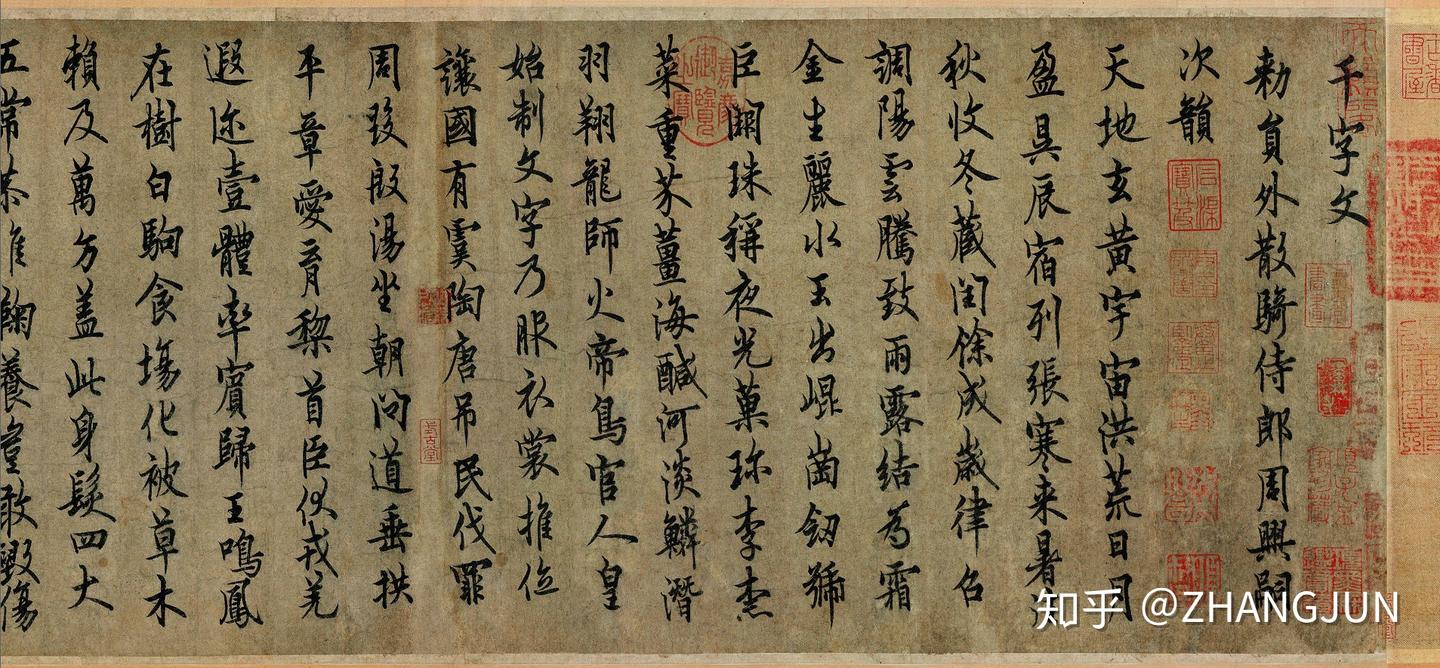 千字文
勅員外散騎侍郎周興嗣
次韻
天地玄黃宇宙洪荒日月
盈昃辰宿列張寒来暑往
秋收冬藏閏餘成歲律召
調陽雲騰致雨露結為霜
金生麗水玉出崐崗劒號
巨闕珠稱夜光菓珍李柰
菜重芥薑海醎河淡鱗潛
羽翔龍師火帝鳥官人皇
始制文字乃服衣裳推位
讓國有虞陶唐弔民伐罪
周發殷湯坐朝問道垂拱
平章愛育黎首臣伏戎羌
遐迩壹體率賓歸王鳴鳳
在樹白駒食場化被草木
賴及萬方盖此身髮四大
五常恭惟鞠養豈敢毀傷
知乎 @ZHANGJUN